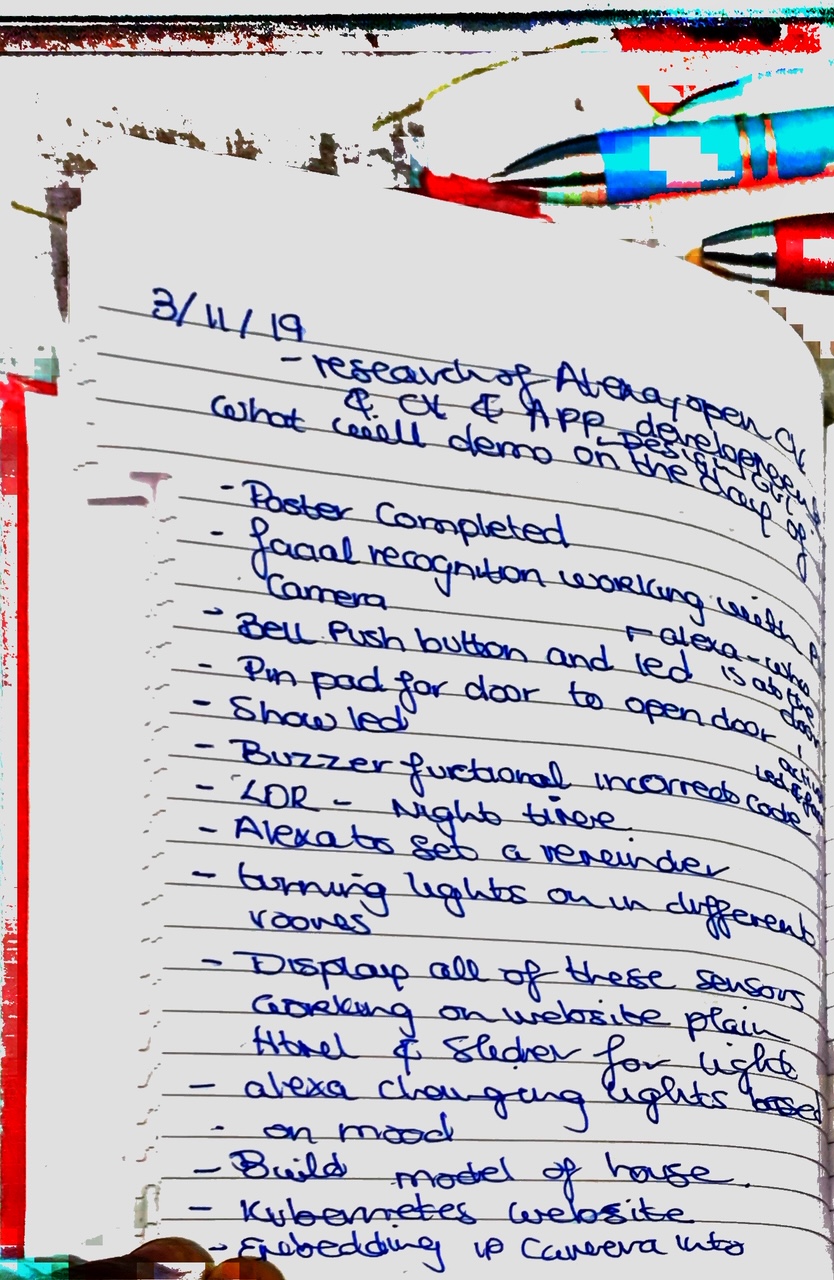 3/11/19
- research of Alexa, open CV
& CX & APP development
- Design GUI
what will demo on the day of
- Poster Completed
- facial recognition working with
Camera
- alexa - who
is at the
door
- Bell Push button and led
- Pin pad for door to open door
- Show led
- Buzzer functional incorrect code
- LDR - Night time
- Alexa to set a reminder
- turning lights on in different
rooms
- Display all of these sensors
working on website plain
Html & Slider for light
- alexa changing lights based
on mood
- Build model of house.
- Kubernetes website
- Embedding IP Camera into